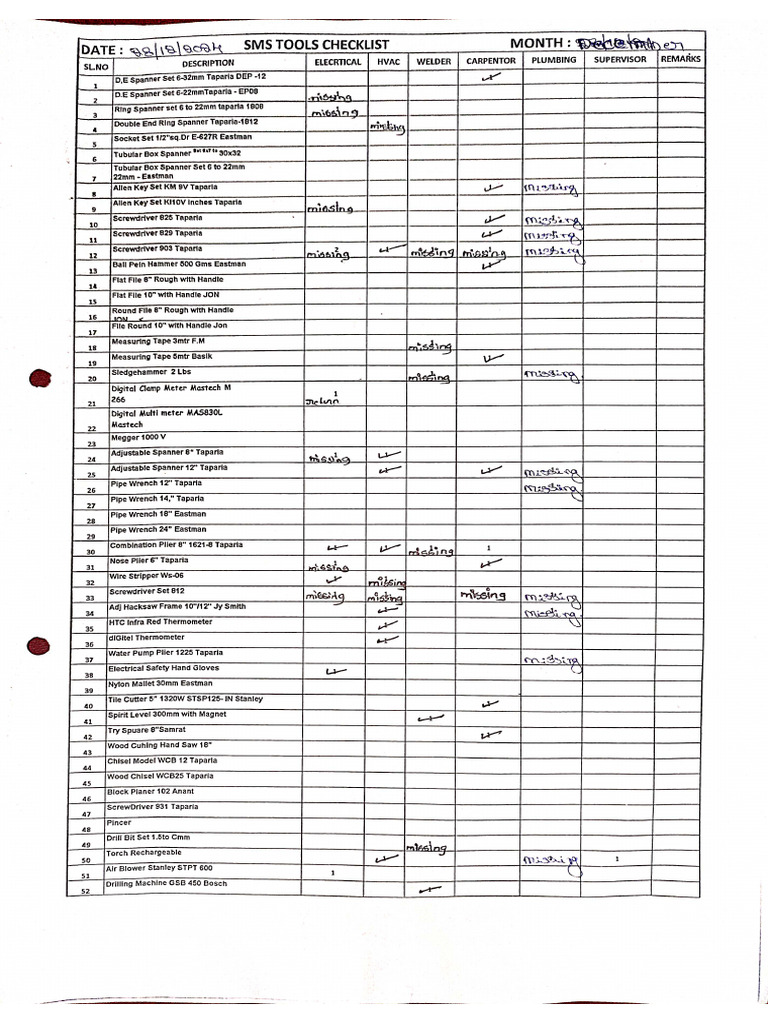 DATE : 28/12/2024 SMS TOOLS CHECKLIST MONTH : December
SL.NO DESCRIPTION ELECRTICAL HVAC WELDER CARPENTOR PLUMBING SUPERVISOR REMARKS
1 D,E Spanner Set 6-32mm Taparia DEP -12 ✓
2 D.E Spanner Set 6-22mmTaparia - EP09 missing
3 Ring Spanner set 6 to 22mm taparia 1808 missing
4 Double End Ring Spanner Taparia-1812 missing
5 Socket Set 1/2"sq.Dr E-627R Eastman
6 Tubular Box Spanner 30x32
7 Tubular Box Spanner Set 6 to 22mm
22mm - Eastman
8 Allen Key Set KM 9V Taparia ✓ Missing
9 Allen Key Set KI10V Inches Taparia missing
10 Screwdriver 825 Taparia ✓ Missing
11 Screwdriver 829 Taparia ✓ Missing
12 Screwdriver 903 Taparia missing ✓ missing missing Missing
13 Ball Pein Hammer 500 Gms Eastman ✓
14 Flat File 8" Rough with Handle
15 Flat File 10" with Handle JON
16 Round File 8" Rough with Handle
JON
17 File Round 10" with Handle Jon
18 Measuring Tape 3mtr F.M missing
19 Measuring Tape 5mtr Basik ✓
20 Sledgehammer 2 Lbs missing missing
21 Digital Clamp Meter Mastech M 1
266
22 Digital Multi meter MAS830L
Mastech
23 Megger 1000 V
24 Adjustable Spanner 8" Taparia missing ✓
25 Adjustable Spanner 12" Taparia ✓ ✓ Missing
26 Pipe Wrench 12" Taparia Missing
27 Pipe Wrench 14," Taparia
28 Pipe Wrench 18" Eastman
29 Pipe Wrench 24" Eastman
30 Combination Plier 8" 1621-8 Taparia ✓ ✓ missing 1
31 Nose Plier 6" Taparia missing ✓
32 Wire Stripper Ws-06 ✓ missing
33 Screwdriver Set 812 missing missing missing Missing
34 Adj Hacksaw Frame 10"/12" Jy Smith ✓ Missing
35 HTC Infra Red Thermometer ✓
36 dIGitel Thermometer ✓
37 Water Pump Plier 1225 Taparia Missing
38 Electrical Safety Hand Gloves ✓
39 Nylon Mallet 30mm Eastman
40 Tile Cutter 5" 1320W STSP125- IN Stanley ✓
41 Spirit Level 300mm with Magnet ✓
42 Try Spuare 8"Samrat ✓
43 Wood Cuhing Hand Saw 18"
44 Chisel Model WCB 12 Taparia
45 Wood Chisel WCB25 Taparia
46 Block Planer 102 Anant
47 ScrewDriver 931 Taparia
48 Pincer
49 Drill Bit Set 1.5to Cmm missing
50 Torch Rechargeable ✓ Missing 1
51 Air Blower Stanley STPT 600 1
52 Drilling Machine GSB 450 Bosch ✓